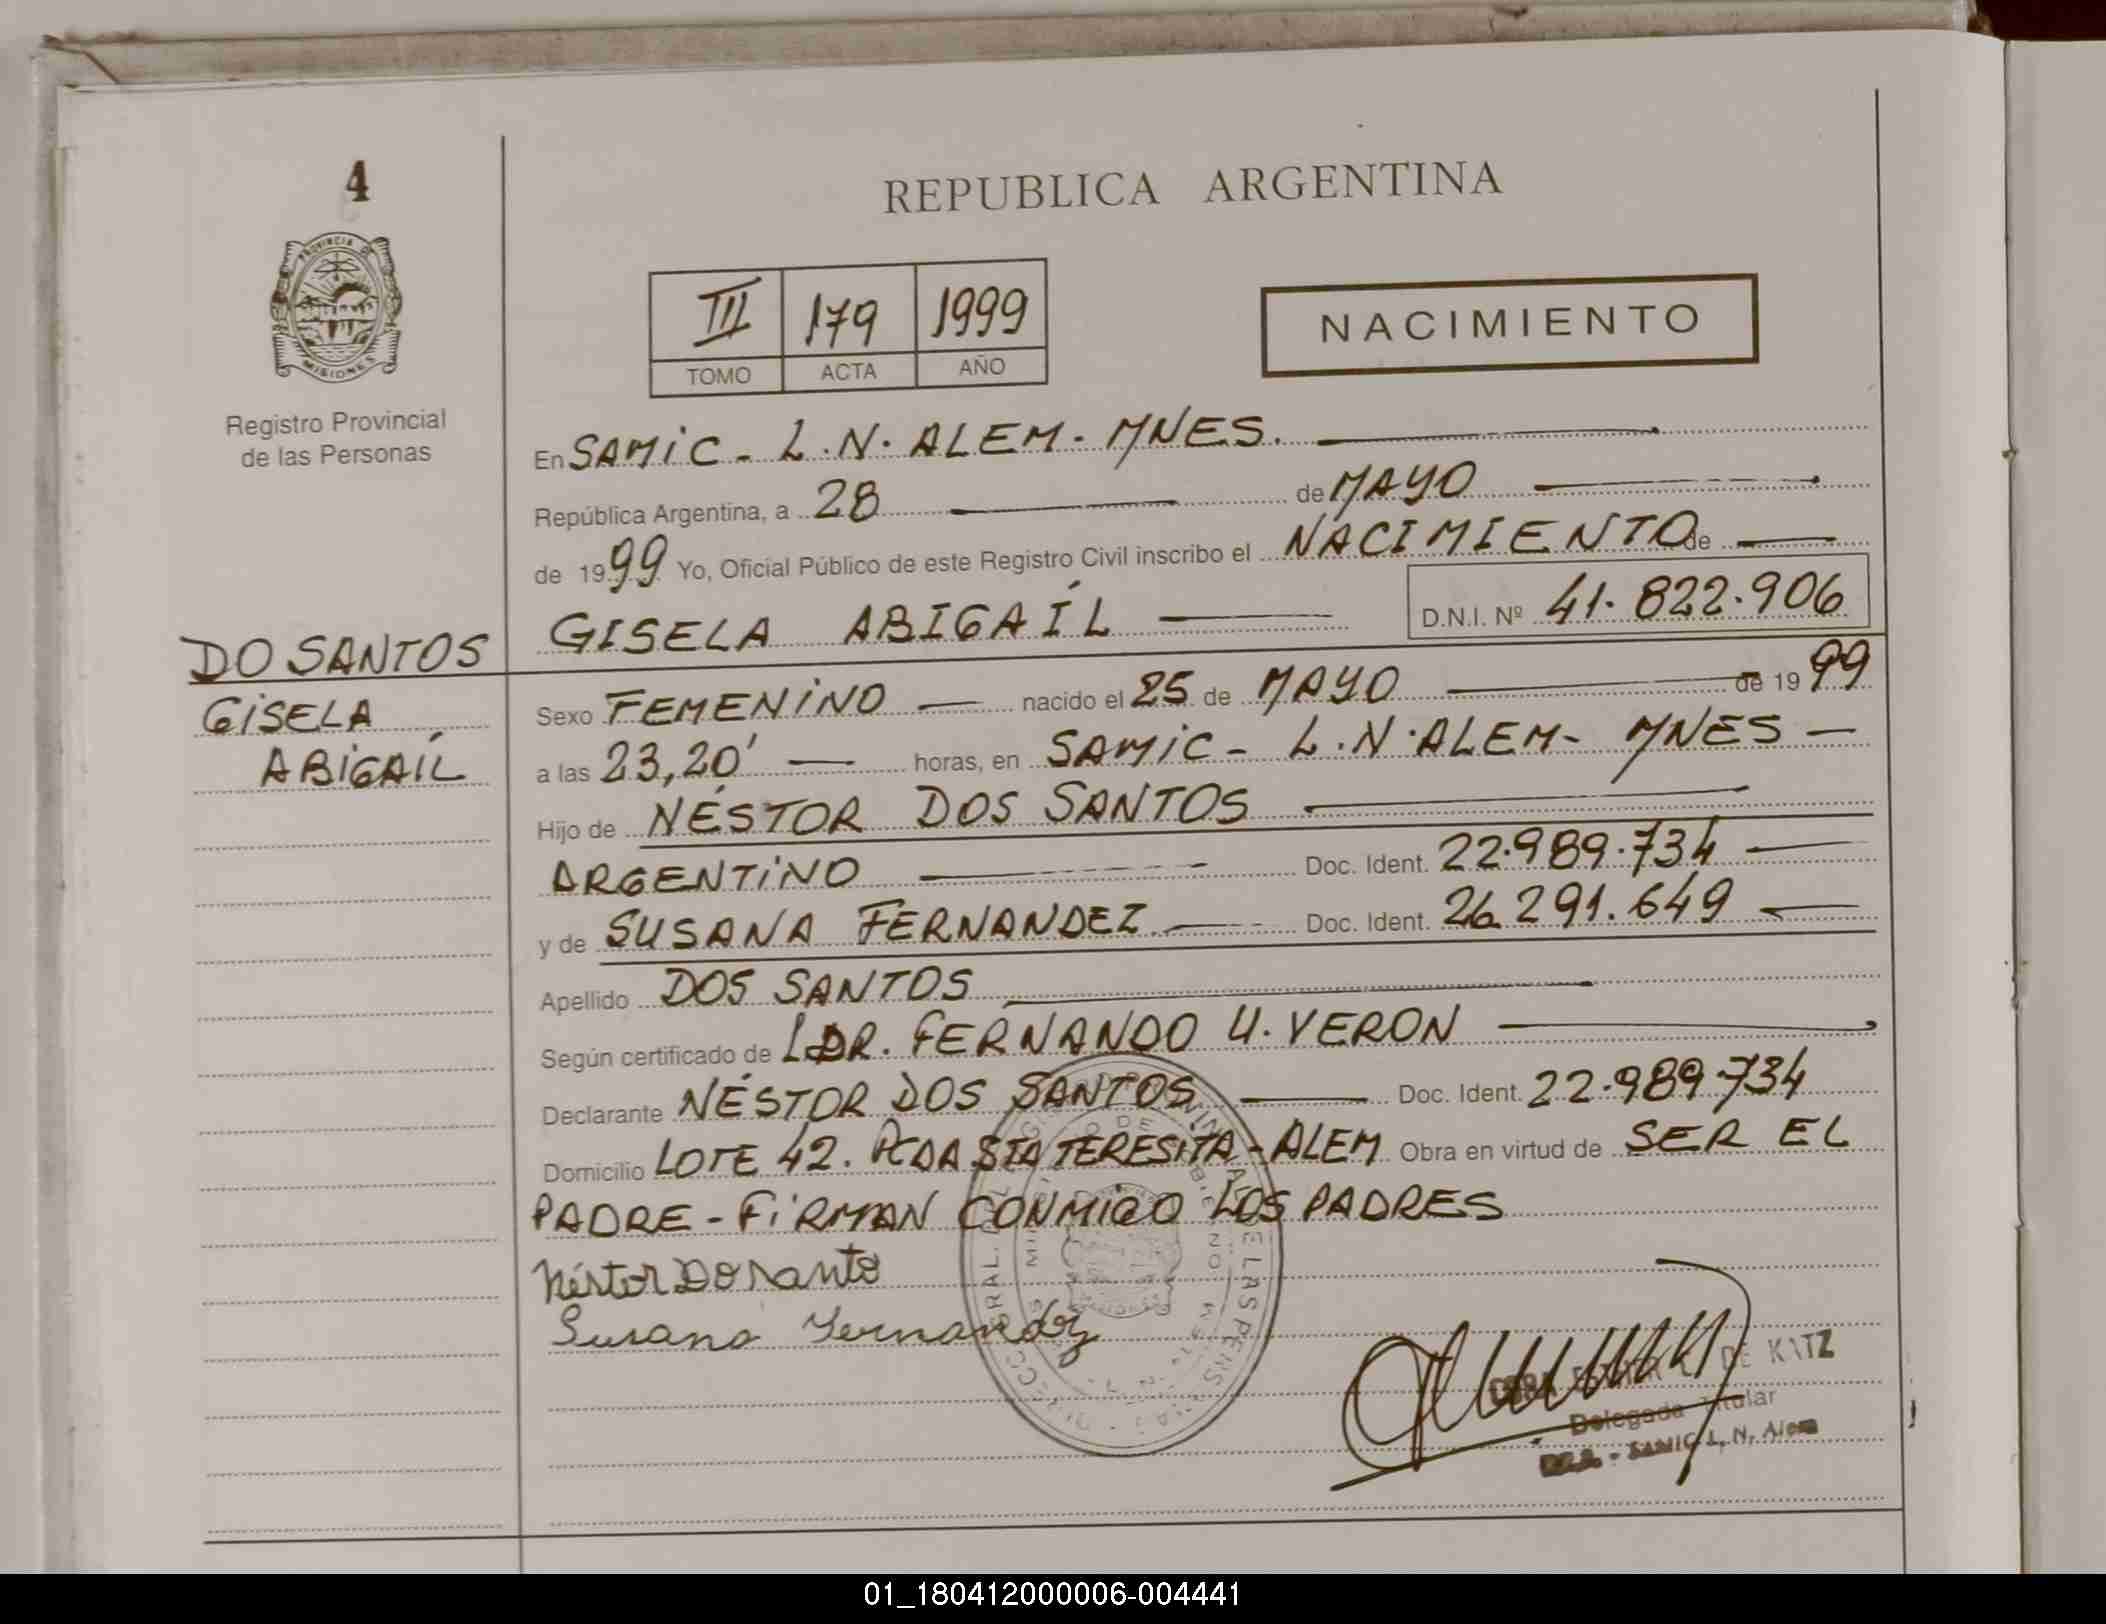 4
PROVINCIA DE
MISIONES
Registro Provincial
de las Personas
DO SANTOS
GISELA
ABIGAÍL
REPUBLICA ARGENTINA
III 179 1999
TOMO ACTA AÑO
NACIMIENTO
En SAMIC - L.N. ALEM - MNES.
República Argentina, a 28 de MAYO
de 1999 Yo, Oficial Público de este Registro Civil inscribo el NACIMIENTO de
GISELA ABIGAÍL D.N.I. Nº 41.822.906
Sexo FEMENINO nacido el 25 de MAYO de 1999
a las 23,20' horas, en SAMIC - L.N. ALEM - MNES
Hijo de NÉSTOR DOS SANTOS
ARGENTINO Doc. Ident. 22.989.734
y de SUSANA FERNANDEZ Doc. Ident. 26.291.649
Apellido DOS SANTOS
Según certificado de DR. FERNANDO U. VERON
Declarante NÉSTOR DOS SANTOS Doc. Ident. 22.989.734
Domicilio LOTE 42. PCDA STA TERESITA - ALEM Obra en virtud de SER EL
PADRE - FIRMAN CONMIGO LOS PADRES
Néstor Do santo
Susana Fernandez
DE KATZ
Delegada Titular
SAMIC L. N. Alem
01_180412000006-004441